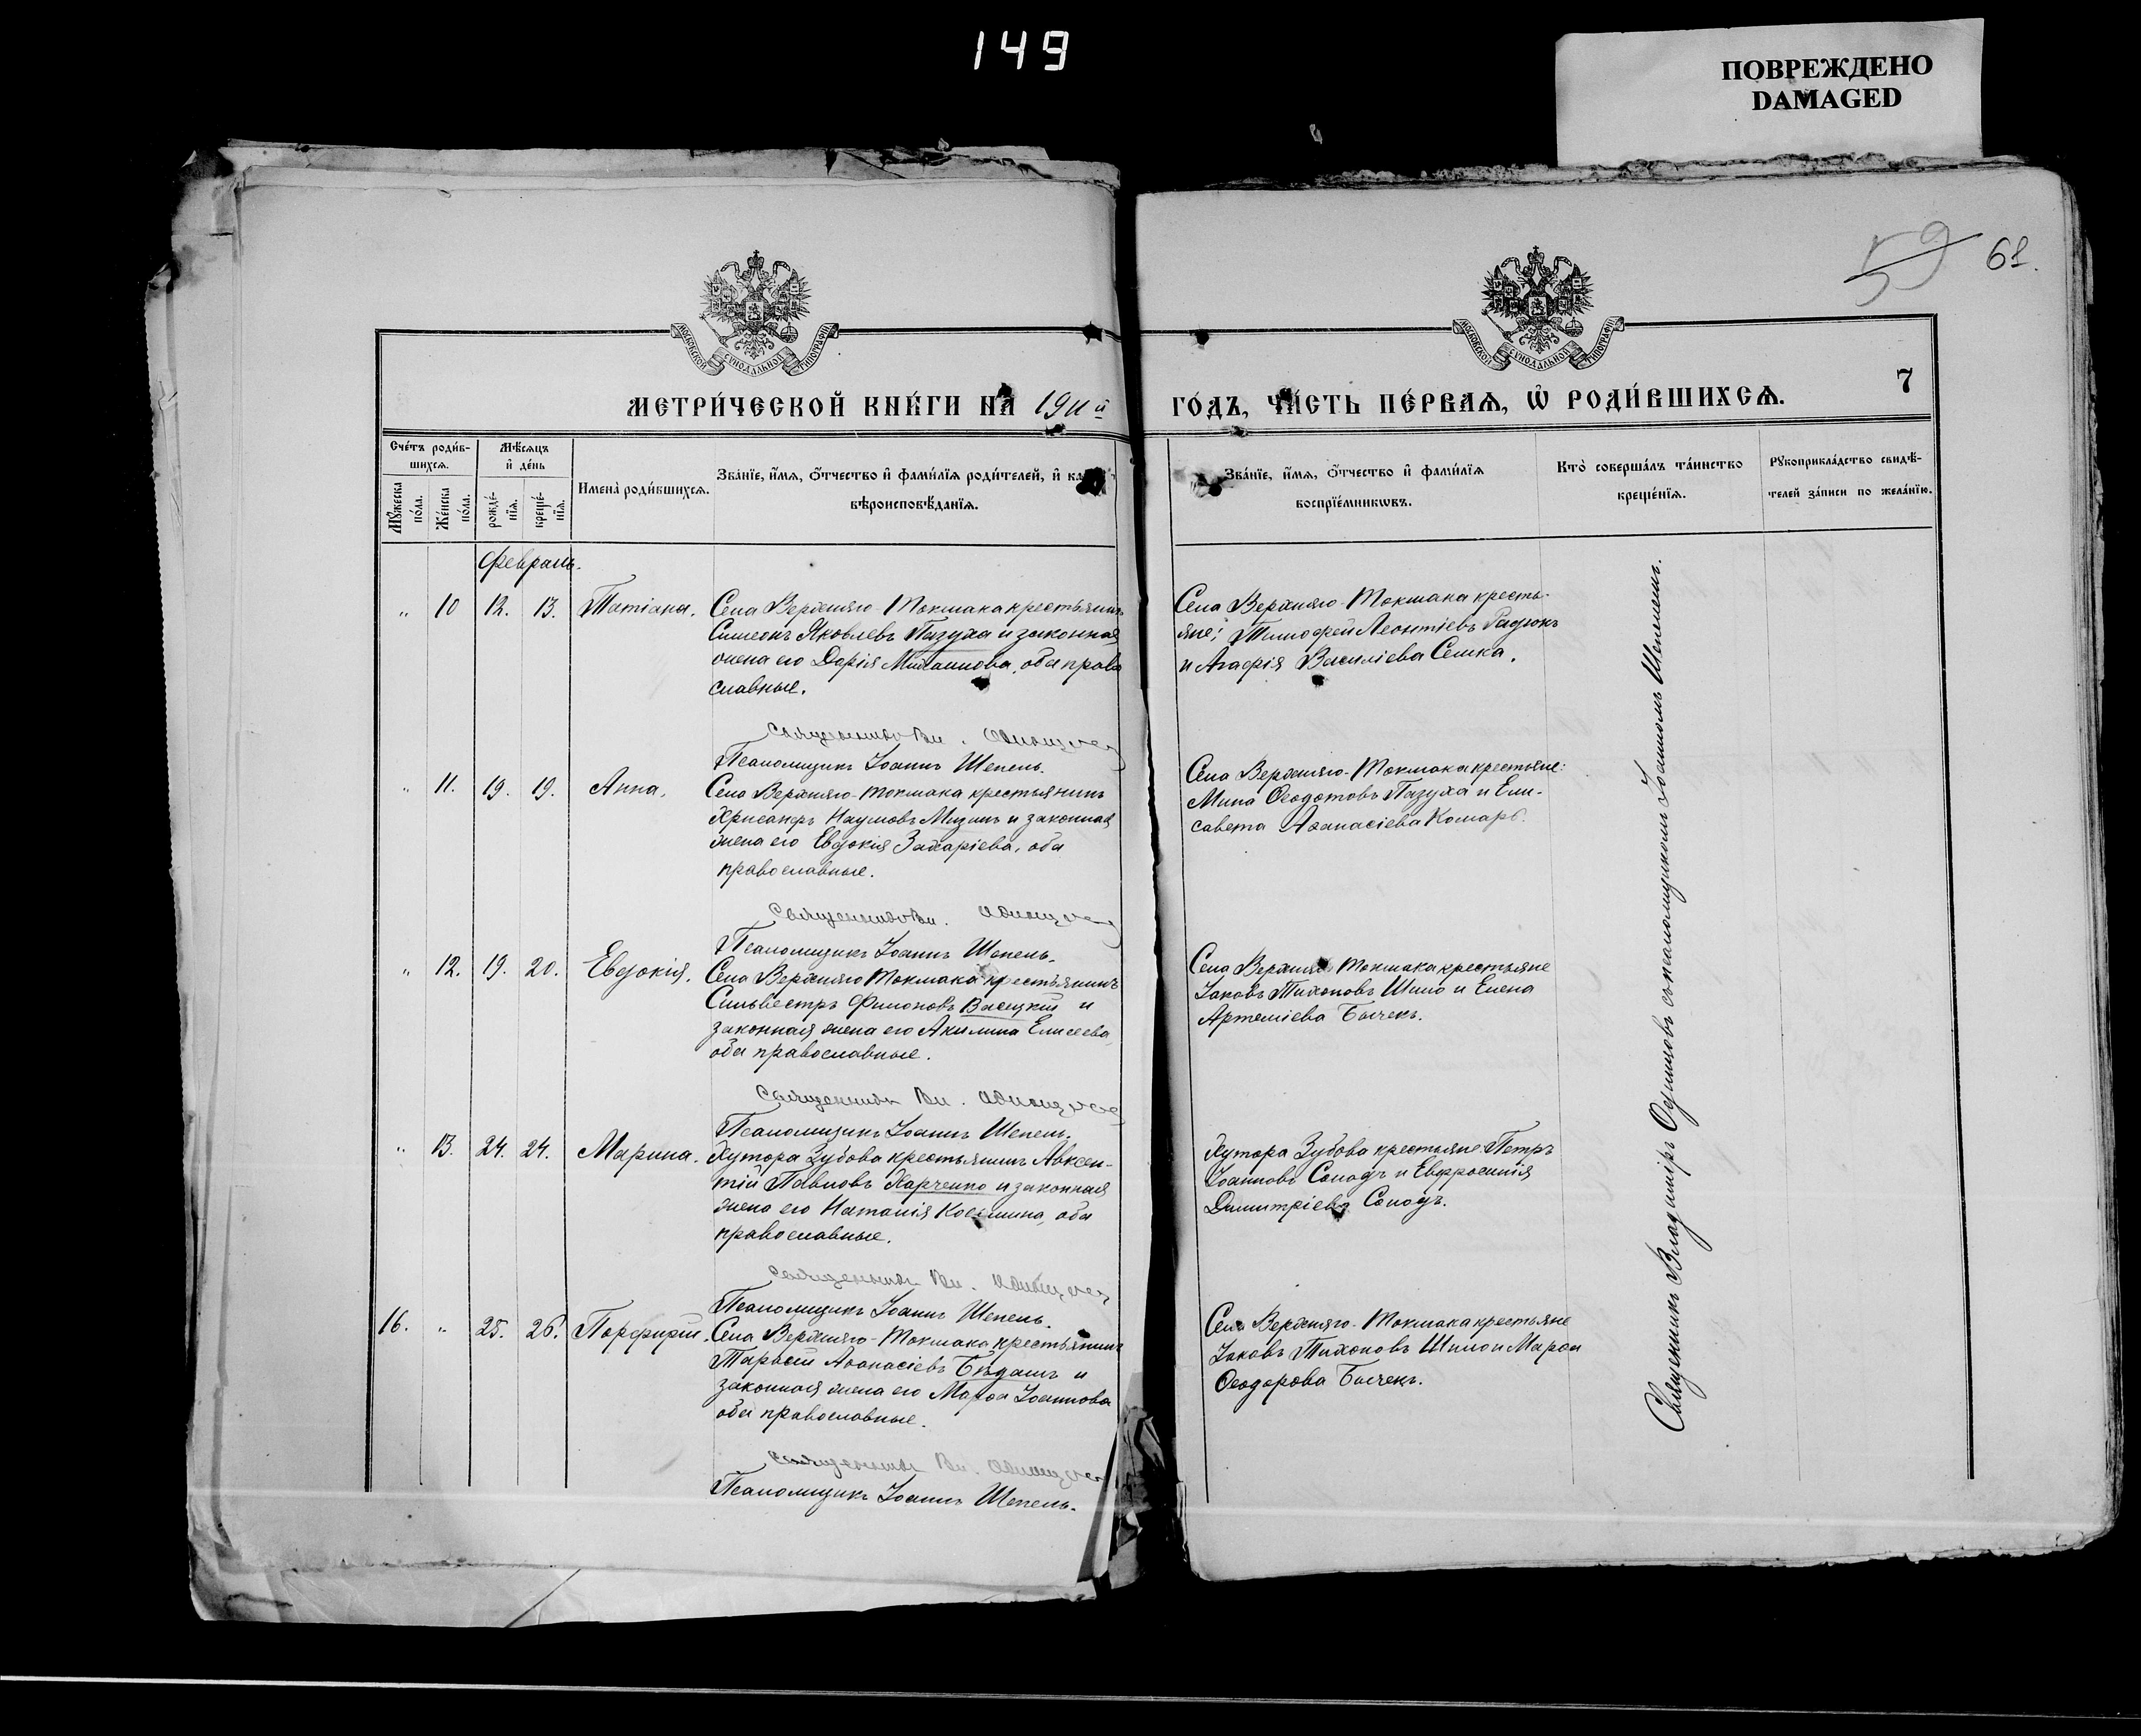 149
ПОВРЕЖДЕНО
DAMAGED
59 61.
МОСКОВСКОЙ СѴНОДАЛЬНОЙ ТИПОГРАФІИ
МОСКОВСКОЙ СѴНОДАЛЬНОЙ ТИПОГРАФІИ
7
МЕТРИ́ЧЕСКОЙ КНИ́ГИ НА 1911й ГО́ДЪ, ЧА́СТЬ ПЕ́РВАѦ, Ѡ҆ РОДИ́ВШИХСѦ.
Сче́тъ роди́в-
шихсѧ.
Мꙋ́жеска по́ла.
Же́нска по́ла.
Мѣ́сѧцъ
и҆ де́нь
рожде́-
нїѧ.
креще́-
нїѧ.
И҆мена̀ роди́вшихсѧ.
Зва́нїе, и҆́мѧ, ѻ҆́тчество и҆ фами́лїѧ роди́телей, и҆
вѣроисповѣ́данїѧ.
Зва́нїе, и҆́мѧ, ѻ҆́тчество и҆ фами́лїѧ
воспрїе́мникѡвъ.
Кто̀ соверша́лъ та́инство
креще́нїѧ.
Рꙋкоприкла́дство свидѣ́-
телей за́писи по жела́нїю.
Февраль.
" 10 12. 13. Татіана.
Села Верхняго-Токмака крестьянинъ
Симеонъ Яковлевъ Пазуха и законная
жена его Дарія Михаилова, оба право
славные.
Священникъ Вл. Одинцовъ
Псаломщикъ Іоаннъ Шепель.
Села Верхняго-Токмака кресть-
яне: Тимофей Леонтіевъ Радюкъ
и Агафія Василіева Семка.
" 11. 19. 19. Анна.
Села Верхняго-Токмака крестьянинъ
Хрисанфъ Наумовъ Мизинъ и законная
жена его Евдокія Захаріева, оба
православные.
Священникъ Вл. Одинцовъ
Псаломщикъ Іоаннъ Шепель.
Села Верхняго-Токмака крестьяне:
Мина Ѳеодотовъ Пазуха и Ели-
савета Аѳанасіева Комаръ.
" 12. 19. 20. Евдокія.
Села Верхняго Токмака крестьянинъ
Сильвестръ Филоновъ Васецкій и
законная жена его Акилина Елисеева,
оба православные.
Священникъ Вл. Одинцовъ
Псаломщикъ Іоаннъ Шепель.
Села Верхняго Токмака крестьяне
Іаковъ Тихоновъ Шило и Елена
Артеміева Бычекъ.
" 13. 24. 24. Марина.
Хутора Зубова крестьянинъ Авксен-
тій Павловъ Харченко и законная
жена его Наталія Космина, оба
православные.
Священникъ Вл. Одинцовъ
Псаломщикъ Іоаннъ Шепель.
Хутора Зубова крестьяне: Петръ
Іоанновъ Солодъ и Евфросинія
Димитріева Солодъ.
16. " 25. 26. Порфирій.
Села Верхняго-Токмака крестьянинъ
Тарасій Аѳанасіевъ Бѣдашъ и
законная жена его Марѳа Іоаннова
оба православные.
Священникъ Вл. Одинцовъ
Псаломщикъ Іоаннъ Шепель.
Села Верхняго-Токмака крестьяне
Іаковъ Тихоновъ Шило и Марѳа
Ѳеодорова Бычекъ.
Священникъ Владиміръ Одинцовъ съ псаломщикомъ Іоанномъ Шепелемъ.